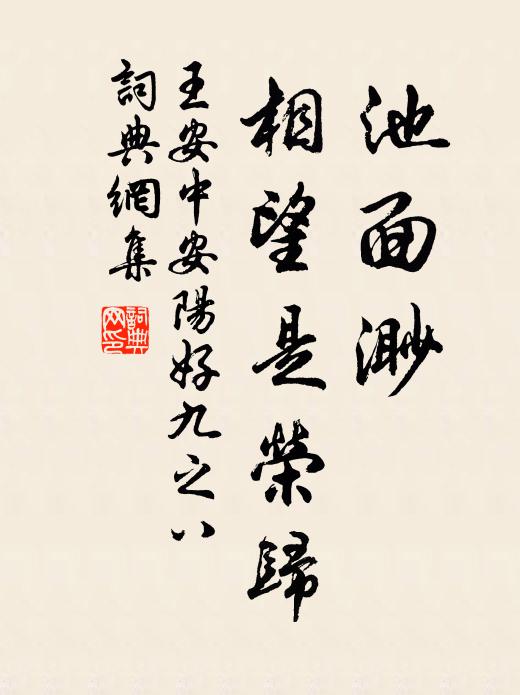 池面渺
相望是榮歸
王安中安陽好九之八
詞典網集
詞典網印